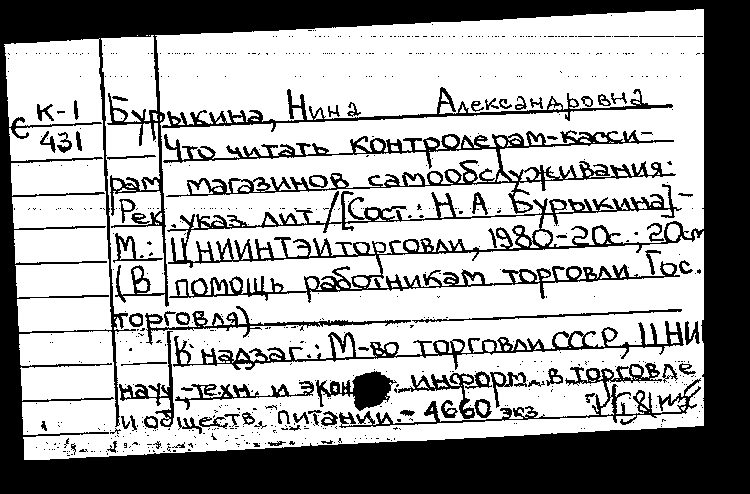 К-1 Бурыкина, Нина Александровна
Є 431 Что читать контролерам-касси-
рам магазинов самообслуживания:
Рек. указ. лит. /[Сост.: Н. А. Бурыкина].-
М.: ЦНИИНТЭИторговли, 1980.-20с.; 20см
(В помощь работникам торговли. Гос.
торговля)
К надзаг.: М-во торговли СССР, ЦНИИ
науч.-техн. и экон информ. в торговле
и обществ. питании.- 4660 экз.